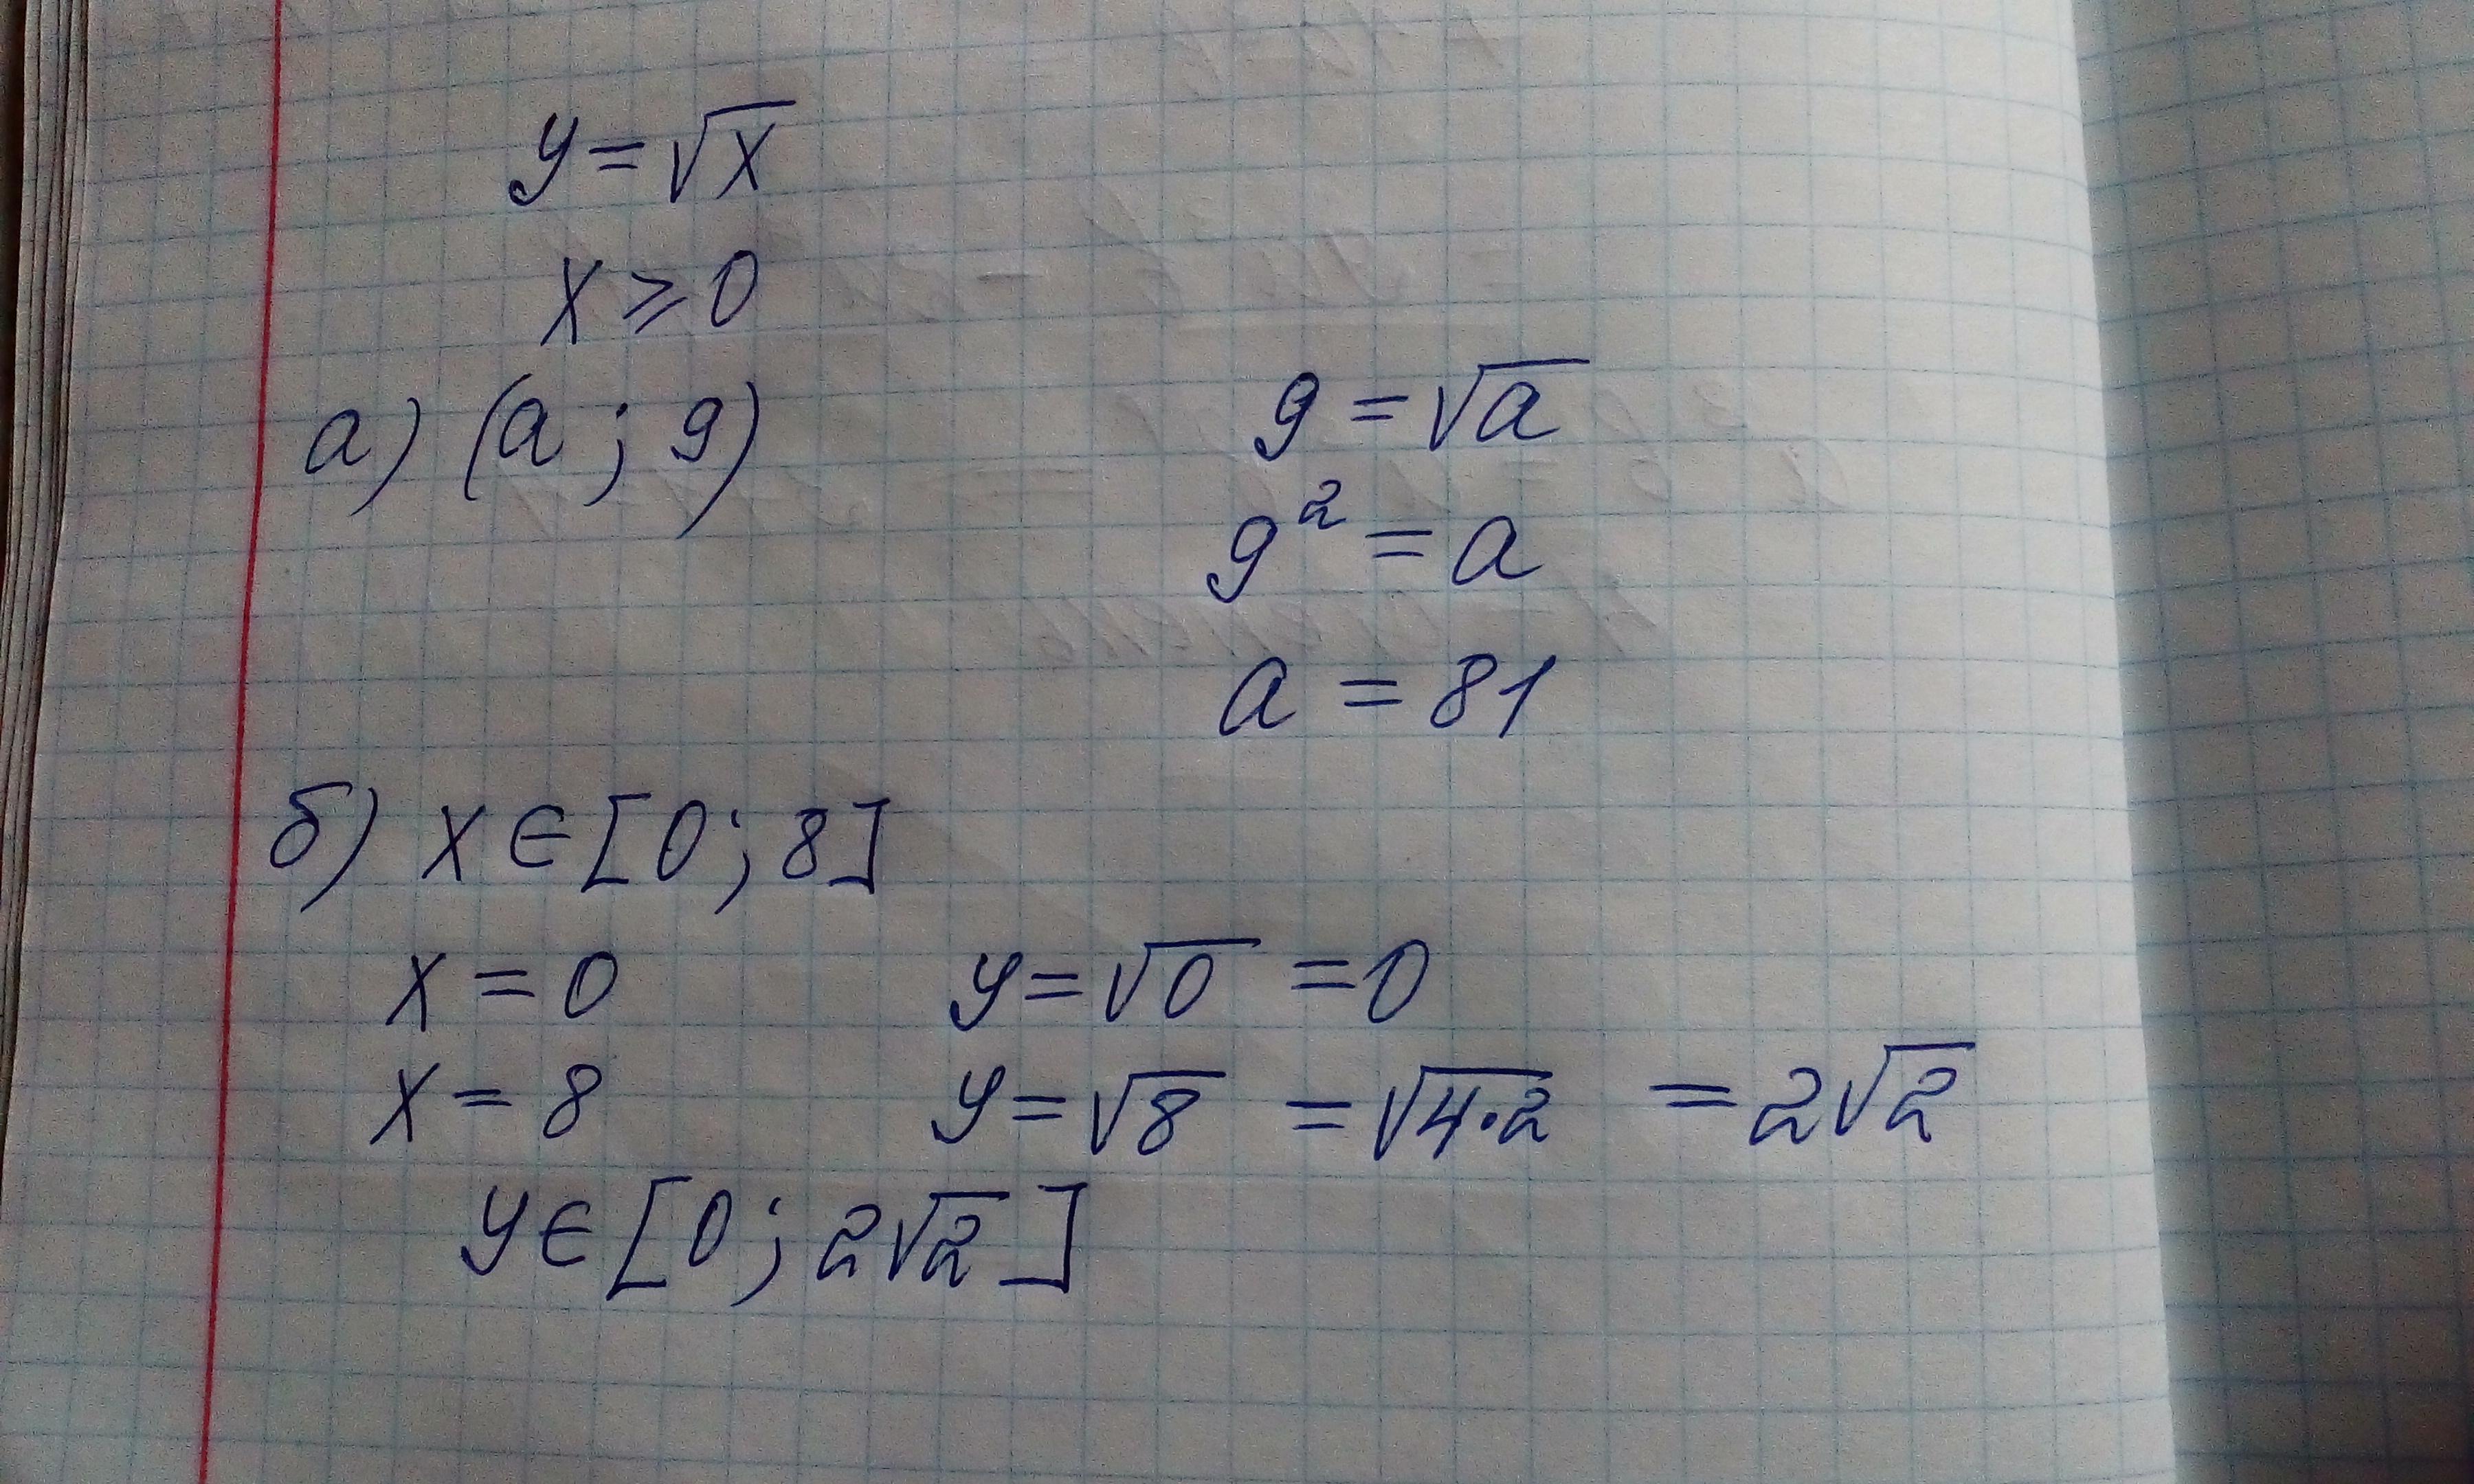 y = √x
x ≥ 0
а) (a ; 9) 9 = √a
9² = a
a = 81
б) x ∈ [0; 8]
x = 0 y = √0 = 0
x = 8 y = √8 = √4·2 = 2√2
y ∈ [0; 2√2]